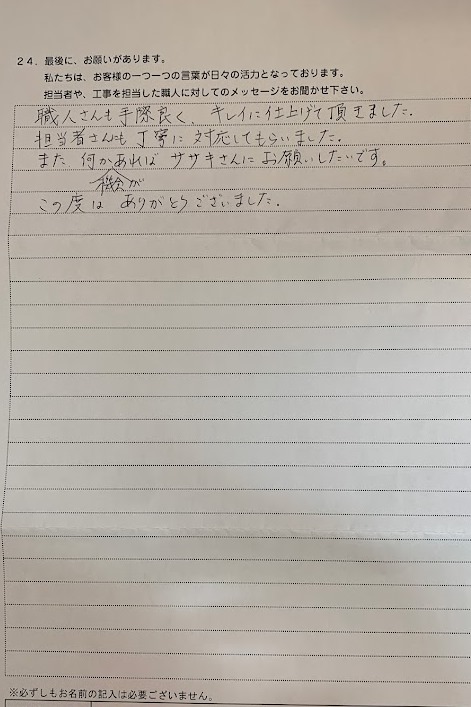 24. 最後に、お願いがあります。
私たちは、お客様の一つ一つの言葉が日々の活力となっております。
担当者や、工事を担当した職人に対してのメッセージをお聞かせ下さい。
職人さんも手際良く、キレイに仕上げて頂きました.
担当者さんも丁寧に対応してもらいました.
また何かあれば ササキさんに お願いしたいです。
機会が
この度は ありがとうございました.
※必ずしもお名前の記入は必要ございません。